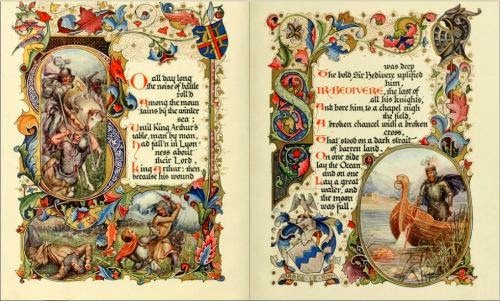 SO all day long
the noise of battle
roll'd
Among the moun
tains by the winter
sea;
Until King Arthur's
table, man by man,
had fall'n in Lyon
ness about
their Lord,
King Arthur: then,
because his wound
was deep
The bold Sir Bedivere uplifted
him,
SIR·BEDIVERE, the last of
all his knights,
And bore him to a chapel nigh
the field,
A broken chancel with a broken
cross,
That stood on a dark strait
of barren land.
On one side
lay the Ocean,
and on one
Lay a great
water, and
the moon
was full.